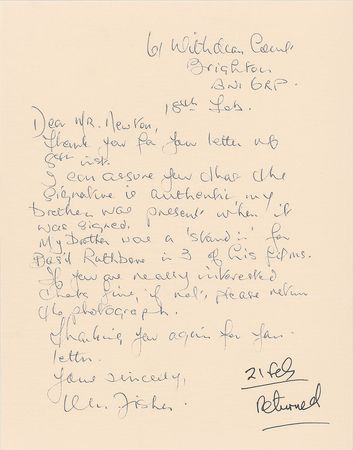 61 Withdean Court
Brighton
BN1 6RP.
18th Feb.
Dear Mr. Newton,
Thank you for your letter of
8th inst.
I can assure you that the
signature is authentic, my
brother was present when it
was signed.
My brother was a 'stand in' for
Basil Rathbone in 3 of his films.
If you are really interested
that's fine, if not, please return
the photograph.
Thanking you again for your
letter.
Yours sincerely,
Wm. Fisher.
21 Feb
Returned